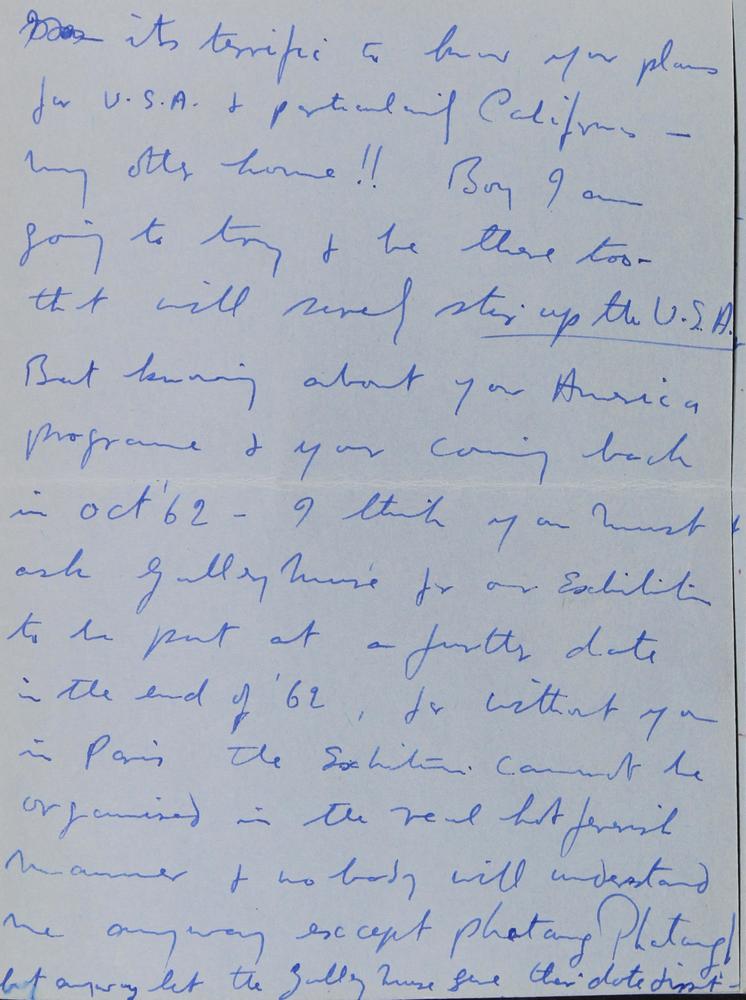 its terrific to know your plans
for U.S.A. & particularly California -
my other home!! Boy I am
going to try & be there too -
that will surely stir up the U.S.A.
But knowing about your America
programe & your coming back
in oct '62 - I think you must
ask for our Exhibition
to be put at a further date
in the end of '62, for without you
in Paris the Exhibition cannot be
organised in the real hot feverish
manner & nobody will understand
me anyway except phatang Phatang!
but anyway let the give their date first -